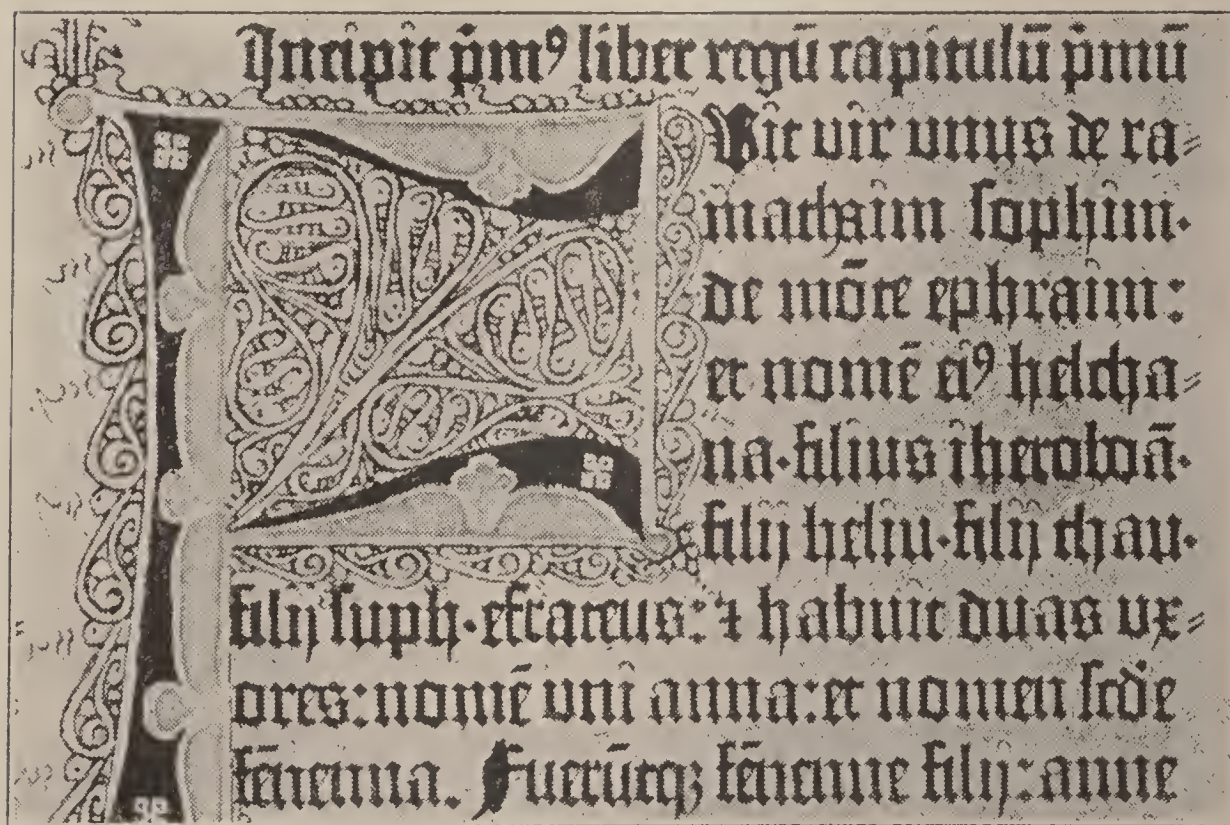 Incipit pm⁹ liber regū capitulū pmū
FVit vir unus de ra⸗
mathaim sophim·
de mōte ephraim:
et nomē ei⁹ helcha⸗
na·filius iheroboā·
filij heliu·filij thau·
filij suph·effrateus: ⁊ habuit duas ux⸗
ores: nomē uni anna: et nomen scd̄e
fēnenna. Fuerūtqꝫ fēnenne filij: anne